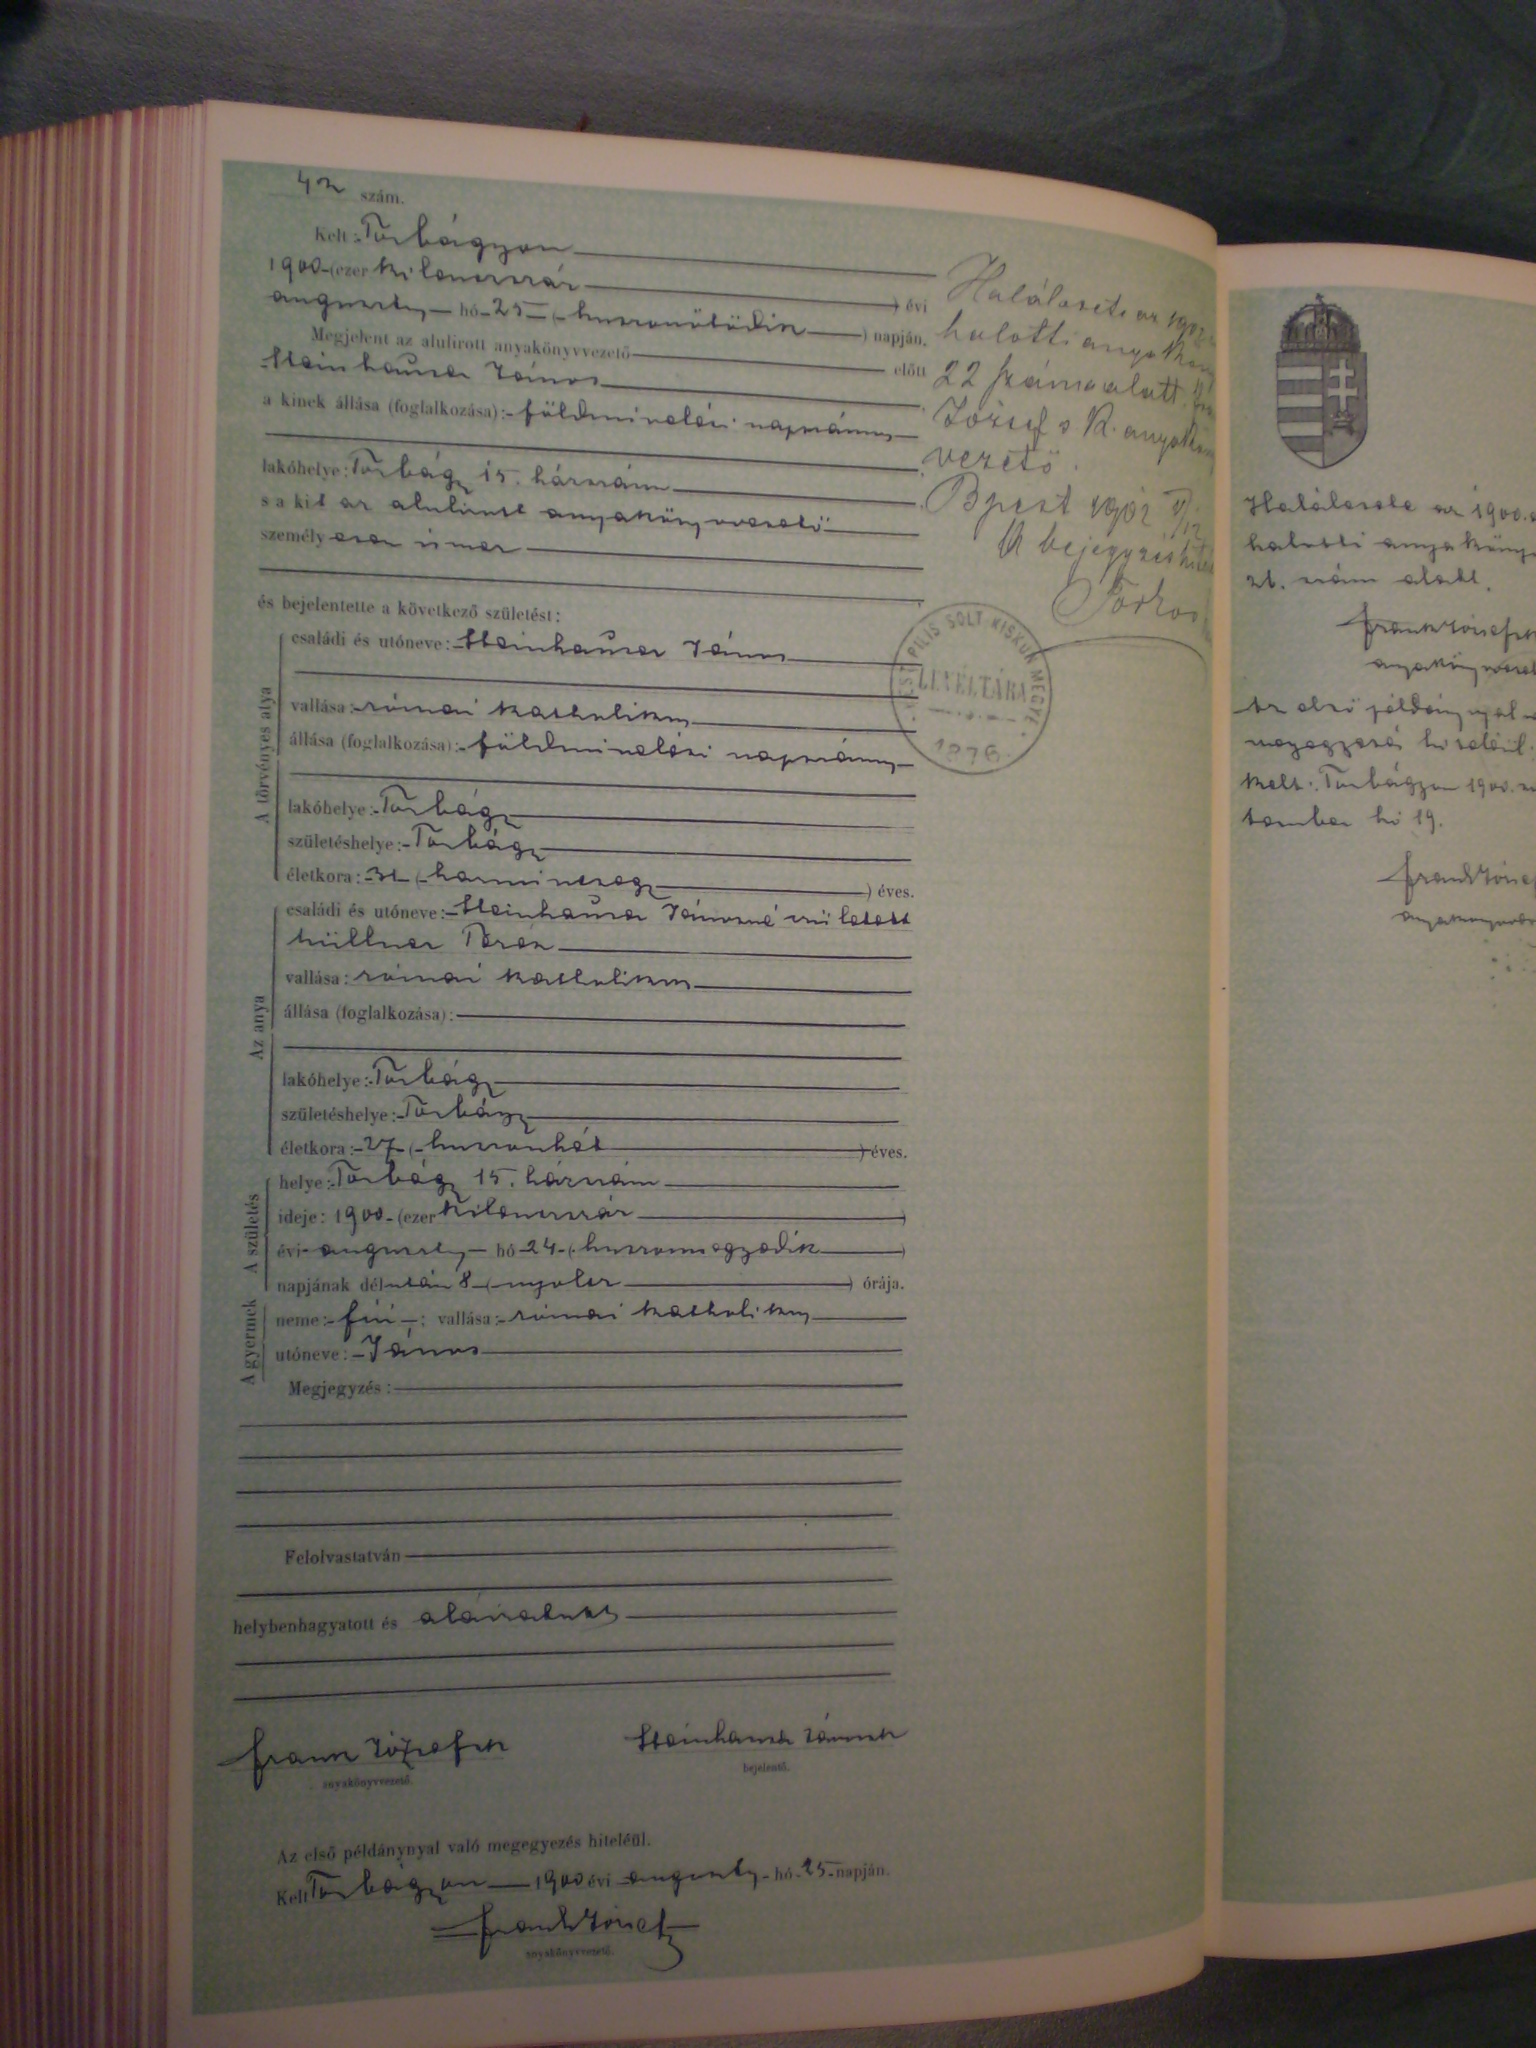 42 szám.
Kelt: Torbágyon
1900 (ezer kilenczszáz
) évi
augusztus hó 25 (huszonötödik) napján,
Megjelent az alulirott anyakönyvvezető előtt
Steinhauser János
a kinek állása (foglalkozása): földmivelési napszámos
lakóhelye: Torbágy 15. házszám
s a kit az alulirott anyakönyvvezető
személyesen ismer
és bejelentette a következő születést:
A törvényes atya
családi és utóneve: Steinhauser János
vallása: római katholikus
állása (foglalkozása): földmivelési napszámos
lakóhelye: Torbágy
születéshelye: Torbágy
életkora: 31 (harminczegy) éves.
Az anya
családi és utóneve: Steinhauser Jánosné született
Teréz
vallása: római katholikus
állása (foglalkozása):
lakóhelye: Torbágy
születéshelye: Torbágy
életkora: 27 (huszonhét) éves.
A születés
helye: Torbágy 15. házszám
ideje: 1900 (ezer kilenczszáz)
évi augusztus hó 24 (huszonnegyedik)
napjának délután 8 (nyolcz) órája.
A gyermek
neme: fiú; vallása: római katholikus
utóneve: János
Megjegyzés:
Felolvastatván
helybenhagyatott és aláiratott
Frank József sk
Steinhauser János sk
anyakönyvvezető.
bejelentő.
Az első példánynyal való megegyezés hiteléül.
Kelt Torbágyon 1900 évi augusztus hó 25 napján.
Frank József
anyakönyvvezető.
Halálesete az 1902
halotti anyakönyv
22 szám alatt.
József s k. anyakönyv
vezető.
Bpest 1902
A bejegyzés
PEST PILIS SOLT KISKUN MEGYE
LEVÉLTÁRA
1876
Halálesete az 1900.
halotti anyakönyv
szám alatt.
Frank József sk
anyakönyvvezető
Az első példánynyal
megegyezés hiteléül.
Kelt: Torbágyon 1900.
tember hó 19.
Frank József
anyakönyvvezető